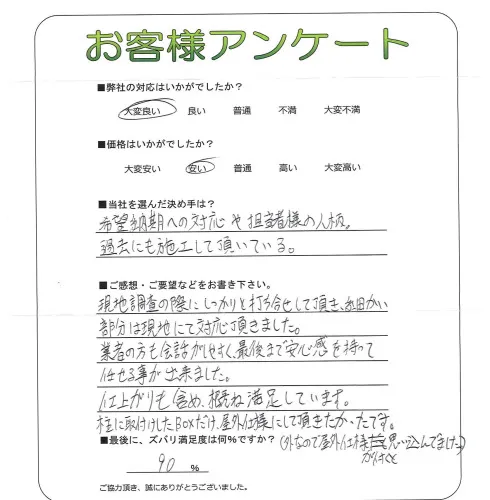 お客様アンケート
■弊社の対応はいかがでしたか？
大変良い 良い 普通 不満 大変不満
■価格はいかがでしたか？
大変安い 安い 普通 高い 大変高い
■当社を選んだ決め手は？
希望納期への対応や担当者様の人柄。
過去にも施工して頂いている。
■ご感想・ご要望などをお書き下さい。
現地調査の際にしっかりと打ち合せして頂き、細かい
部分は現地にて対応頂きました。
業者の方も会話がしやすく、最後まで安心感を持って
任せる事が出来ました。
仕上がりも含め、概ね満足しています。
柱に取付けしたBOXだけ、屋外仕様にして頂きたかったです。
■最後に、ズバリ満足度は何%ですか？
(外なので屋外仕様と思い込んでました)
90 %
ご協力頂き、誠にありがとうございました。